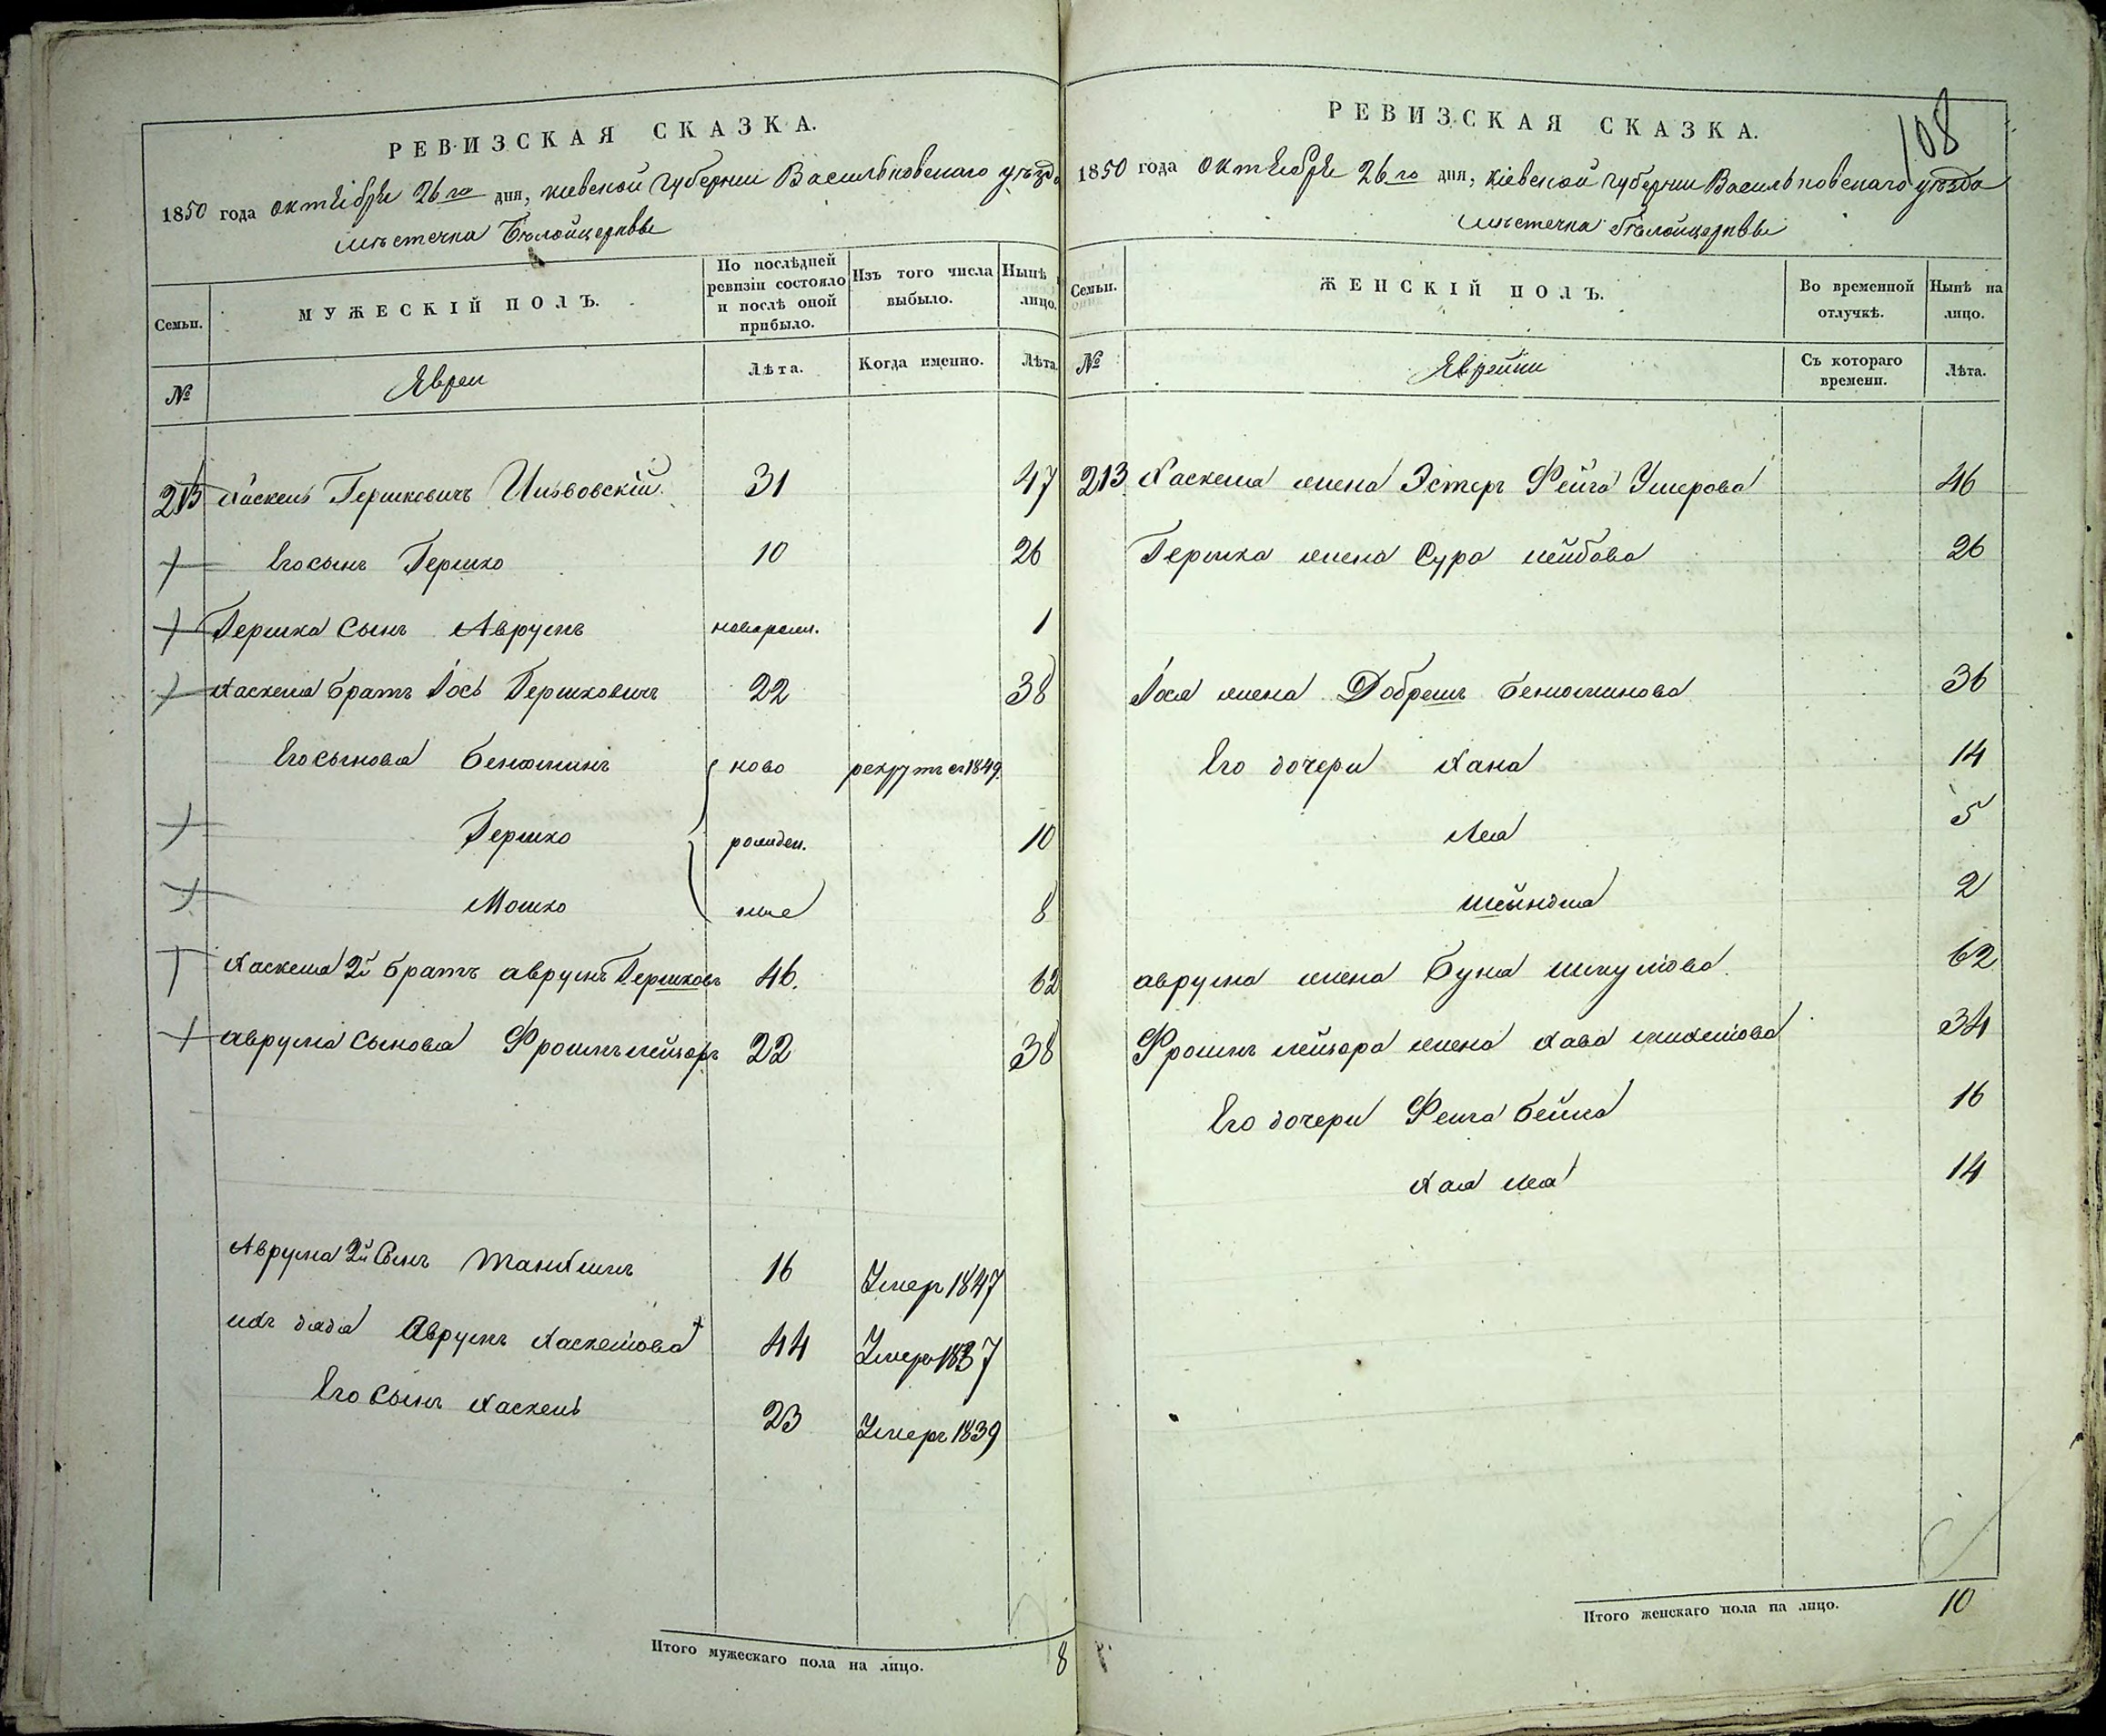 РЕВИЗСКАЯ СКАЗКА.
1850 года октября 26го дня, киевской губернии Васильковскаго уѣзда
мѣстечка Бѣлойцерквы
Семьи.
МУЖЕСКІЙ ПОЛЪ.
По послѣдней ревизіи состояло и послѣ оной прибыло.
Изъ того числа выбыло.
Нынѣ лицо.
№
Евреи
Лѣта.
Когда именно.
Лѣта.
213 Хаскель Гершковичъ 31 47
Его сынъ Гершко 10 26
Гершка сынъ Аврумъ новорожд. 1
Хаскеля братъ Іось Гершковичъ 22 38
Его сыновья Бенюминъ ново рекрутъ съ 1849.
Гершко рожден. 10
Мошко ные 8
Хаскеля 2й братъ аврумъ Гершковъ 46. 62
аврума сыновья Фроимълейзоръ 22 38
Аврума 2й сынъ 16 Умер 1847
ихъ дядя Аврумъ Хаскелёва 44 Умеръ 1837
Его сынъ Хаскель 23 Умеръ 1839
Итого мужескаго пола на лицо. 8
108
РЕВИЗСКАЯ СКАЗКА.
1850 года октября 26го дня, кіевской губернии Васильковскаго уѣзда
мѣстечка бѣлойцерквы
Семьи.
ЖЕНСКІЙ ПОЛЪ.
Во временной отлучкѣ.
Нынѣ на лицо.
№
Еврейки
Съ котораго времени.
Лѣта.
213 Хаскеля жена Эстеръ Фейга Умерова 46
Гершка жена Сура лейбова 26
Іося жена Добрешъ бенюминова 36
Его дочери Хана 14
Леа 5
шейндля 2
аврума жена Буна шмулёва. 62
Фроимъ лейзора жена хава михелёва 34
Его дочери Фейга бейла 16
Хая леа 14
Итого женскаго пола на лицо. 10